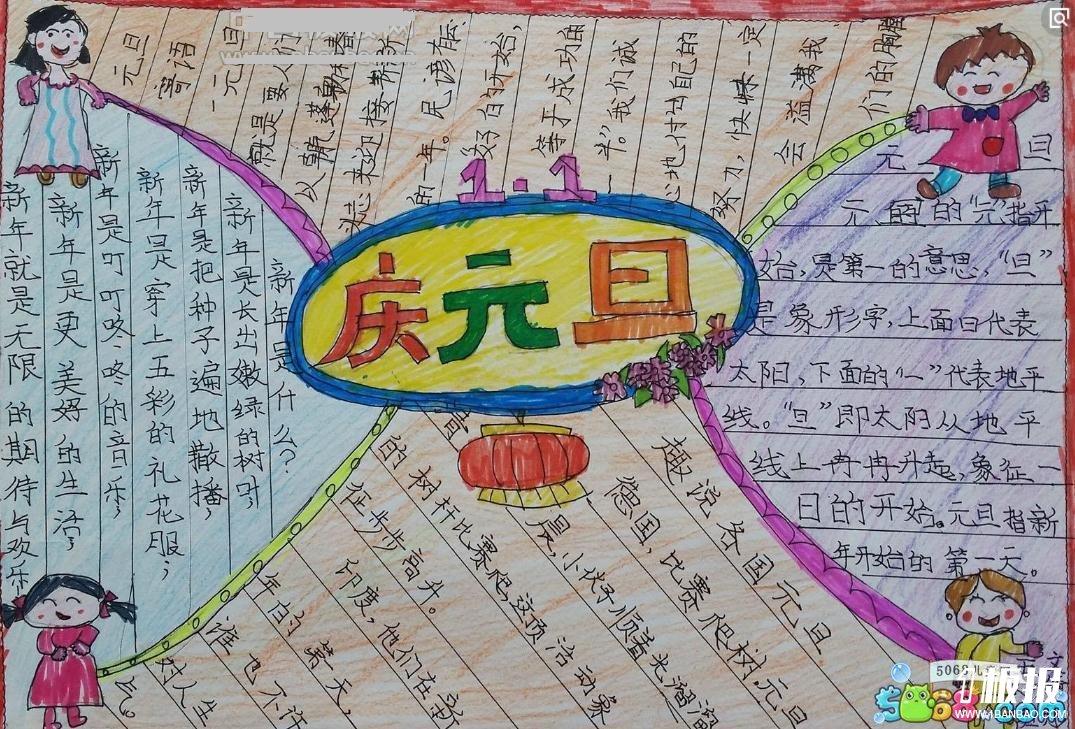 1·1
庆元旦
元旦
寄语
一元旦
就是要人们
以
来迎接新的
的一年。民谚有云:
"好的开始,
等于成功的一
半。"我们诚
心地,付出自己的
努力,快慢一定
会溢满我
们的
元旦
元旦的"元"指开
始,是第一的意思,"旦"
是象形字,上面日代表
太阳,下面的"一"代表地平
线。"旦"即太阳从地平
线上冉冉升起,象征一
日的开始。元旦指新
年开始的第一天。
新年是什么?
新年是长出嫩绿的树叶,
新年是把种子遍地散播,
新年是穿上五彩的礼花服;
新年是叮叮咚咚的音乐;
新年是更美好的生活;
新年就是无限的期待与欢乐
趣说各国元旦
德国,比赛爬树,元旦
晨,小伙子顺着光溜溜
的树杆比赛爬,这项活动象
征步步高升。
印度,他们在新
年的第一天,
谁也不许
对人生
气。
5068儿
板报
WWW.1BANBAO.COM
5068.com